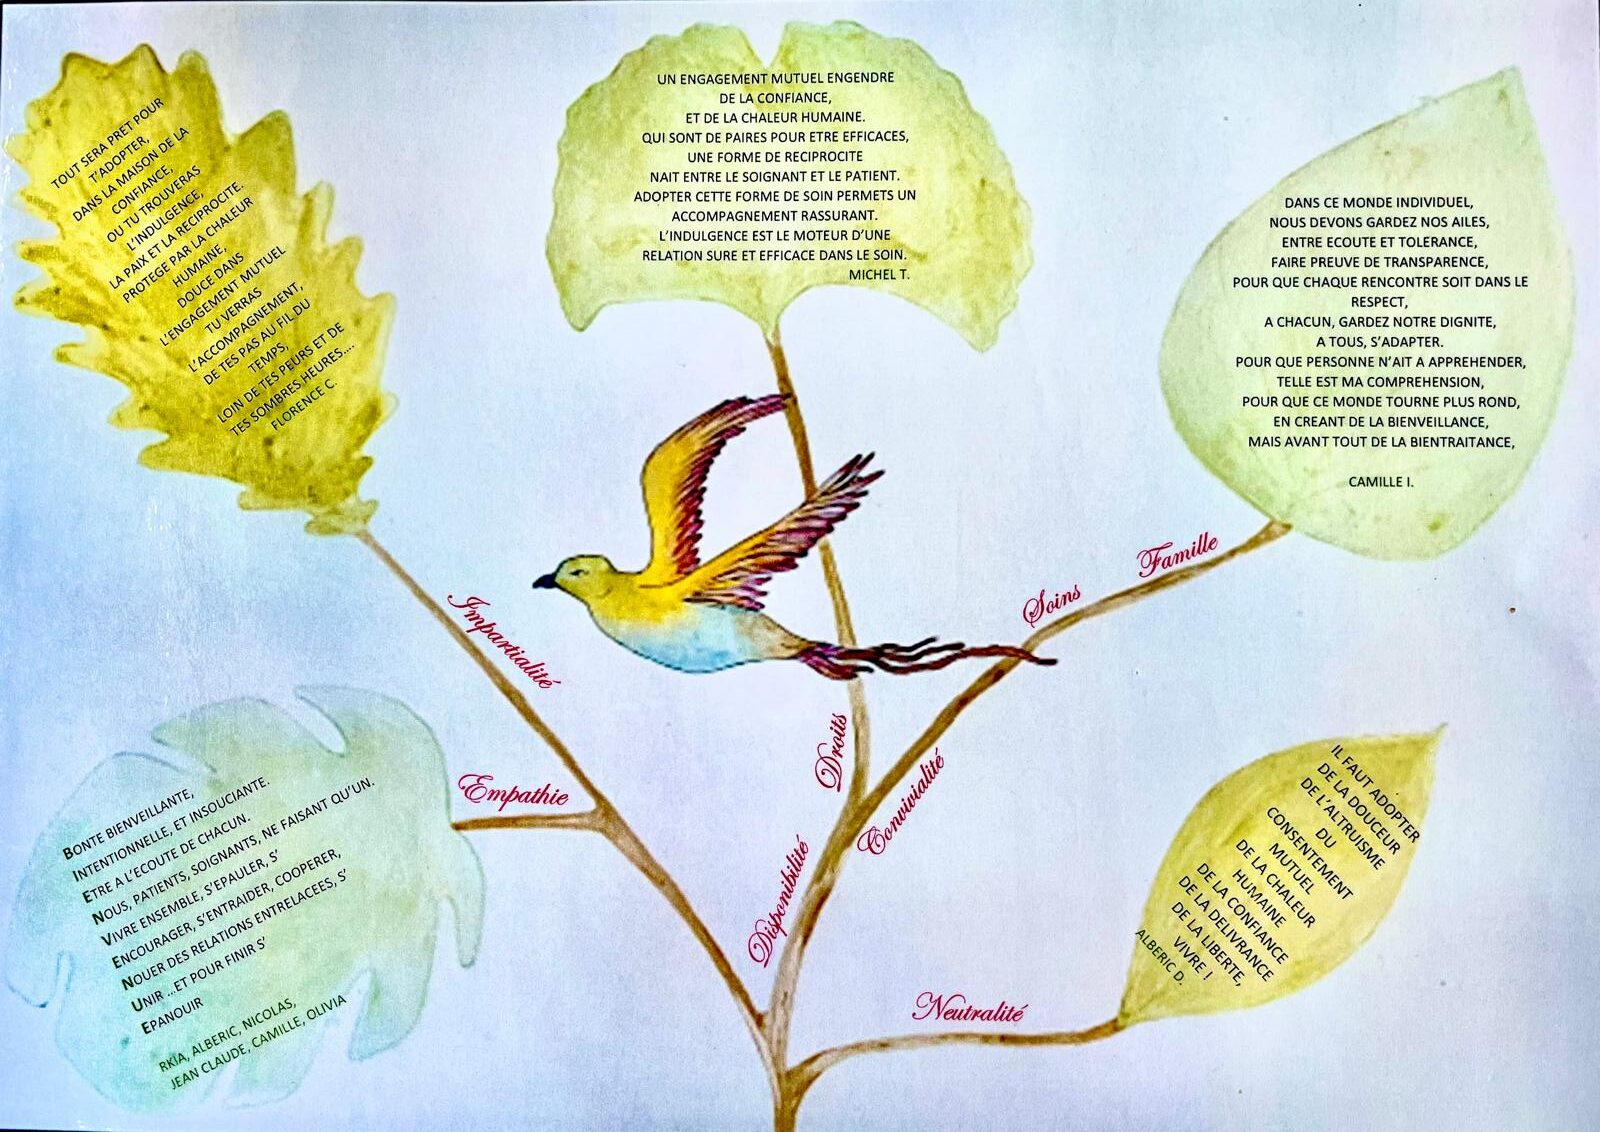 TOUT SERA PRET POUR
T'ADOPTER,
DANS LA MAISON DE LA
CONFIANCE,
OU TU TROUVERAS
L'INDULGENCE,
LA PAIX ET LA RECIPROCITE.
PROTEGE PAR LA CHALEUR
HUMAINE,
DOUCE DANS
L'ENGAGEMENT MUTUEL
TU VERRAS
L'ACCOMPAGNEMENT,
DE TES PAS AU FIL DU
TEMPS,
LOIN DE TES PEURS ET DE
TES SOMBRES HEURES....
FLORENCE C.
UN ENGAGEMENT MUTUEL ENGENDRE
DE LA CONFIANCE,
ET DE LA CHALEUR HUMAINE.
QUI SONT DE PAIRES POUR ETRE EFFICACES,
UNE FORME DE RECIPROCITE
NAIT ENTRE LE SOIGNANT ET LE PATIENT.
ADOPTER CETTE FORME DE SOIN PERMETS UN
ACCOMPAGNEMENT RASSURANT.
L'INDULGENCE EST LE MOTEUR D'UNE
RELATION SURE ET EFFICACE DANS LE SOIN.
MICHEL T.
DANS CE MONDE INDIVIDUEL,
NOUS DEVONS GARDEZ NOS AILES,
ENTRE ECOUTE ET TOLERANCE,
FAIRE PREUVE DE TRANSPARENCE,
POUR QUE CHAQUE RENCONTRE SOIT DANS LE
RESPECT,
A CHACUN, GARDEZ NOTRE DIGNITE,
A TOUS, S'ADAPTER.
POUR QUE PERSONNE N'AIT A APPREHENDER,
TELLE EST MA COMPREHENSION,
POUR QUE CE MONDE TOURNE PLUS ROND,
EN CREANT DE LA BIENVEILLANCE,
MAIS AVANT TOUT DE LA BIENTRAITANCE,
CAMILLE I.
Impartialité
Empathie
Droits
Disponibilité
Convivialité
Soins
Famille
Neutralité
BONTE BIENVEILLANTE,
INTENTIONNELLE, ET INSOUCIANTE.
ETRE A L'ECOUTE DE CHACUN.
NOUS, PATIENTS, SOIGNANTS, NE FAISANT QU'UN.
VIVRE ENSEMBLE, S'EPAULER, S'
ENCOURAGER, S'ENTRAIDER, COOPERER,
NOUER DES RELATIONS ENTRELACEES, S'
UNIR ...ET POUR FINIR S'
EPANOUIR
RKIA, ALBERIC, NICOLAS,
JEAN CLAUDE, CAMILLE, OLIVIA
IL FAUT ADOPTER
DE LA DOUCEUR
DE L'ALTRUISME
DU
CONSENTEMENT
MUTUEL
DE LA CHALEUR
HUMAINE
DE LA CONFIANCE
DE LA DELIVRANCE
DE LA LIBERTE,
VIVRE !
ALBERIC D.